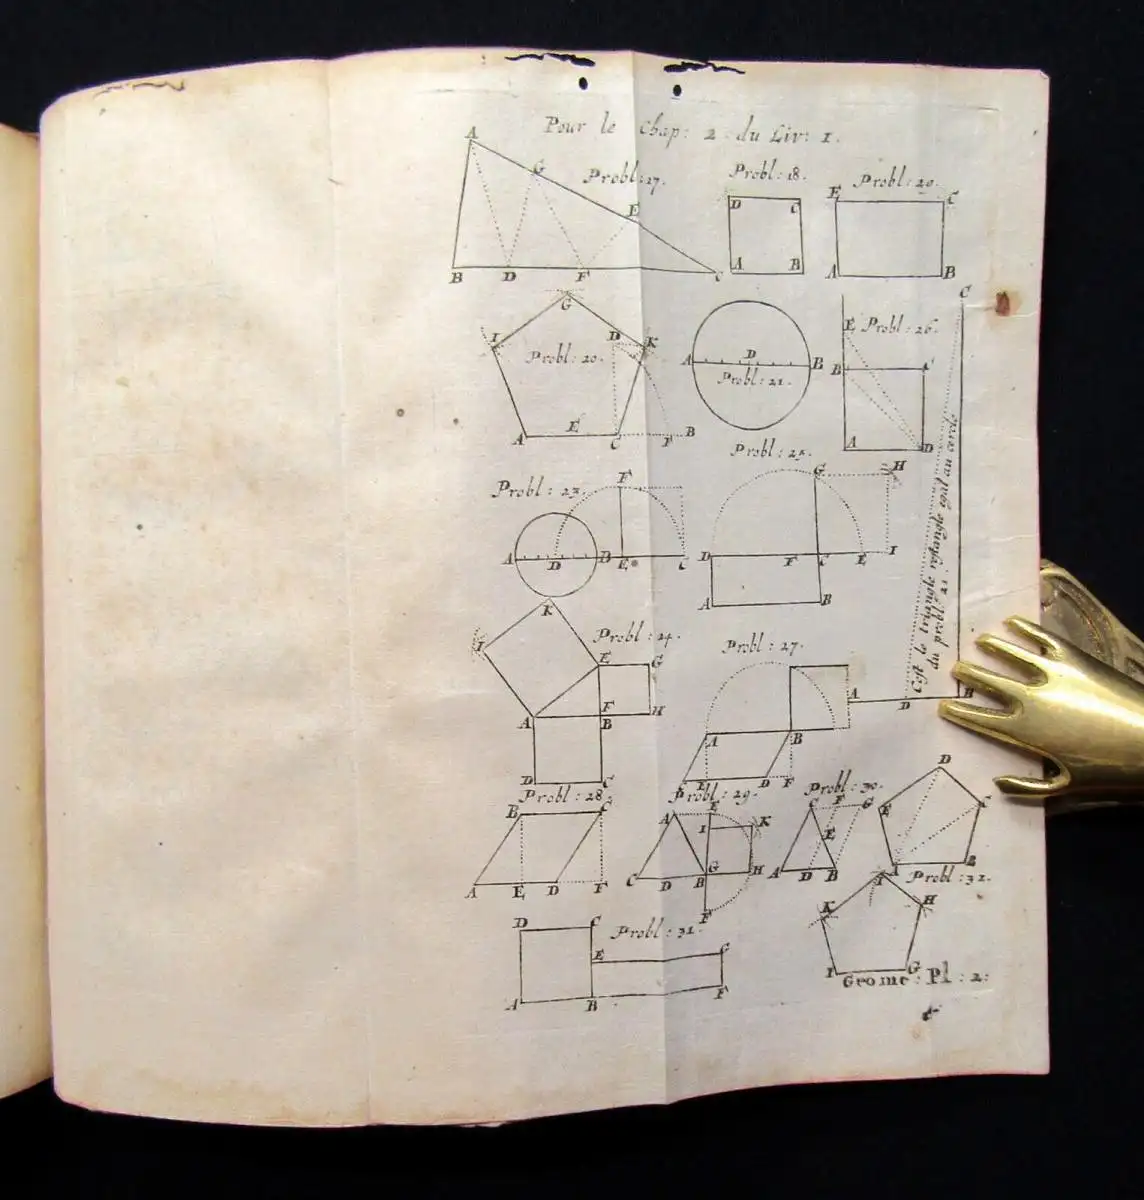 Pour le Chap: 2 du Liv: 1.
A
G
Probl: 17.
E
B D F C
Probl: 18.
D C
A B
Probl: 29.
E C
A B
G
I D K
Probl: 20.
A E C F B
A D B
Probl: 21.
E Probl: 26.
B C
A D
C
Cest le triangle rectangle egal au cercle
du probl: 21.
A D B
Probl: 23.
F
A D B E C
Probl: 25.
G H
D F C E I
A B
K
I
Probl: 24.
E G
A F B H
D C
Probl: 27.
A B
E D F
Probl: 28.
B C
A E D F
Probl: 29.
A E
I K
C D B G H
F
Probl: 30.
C F G
E
A D B
D
E C
A B
Probl: 32.
K H
I G
Probl: 31.
D C
E G
A B F
Geome: Pl: 2: